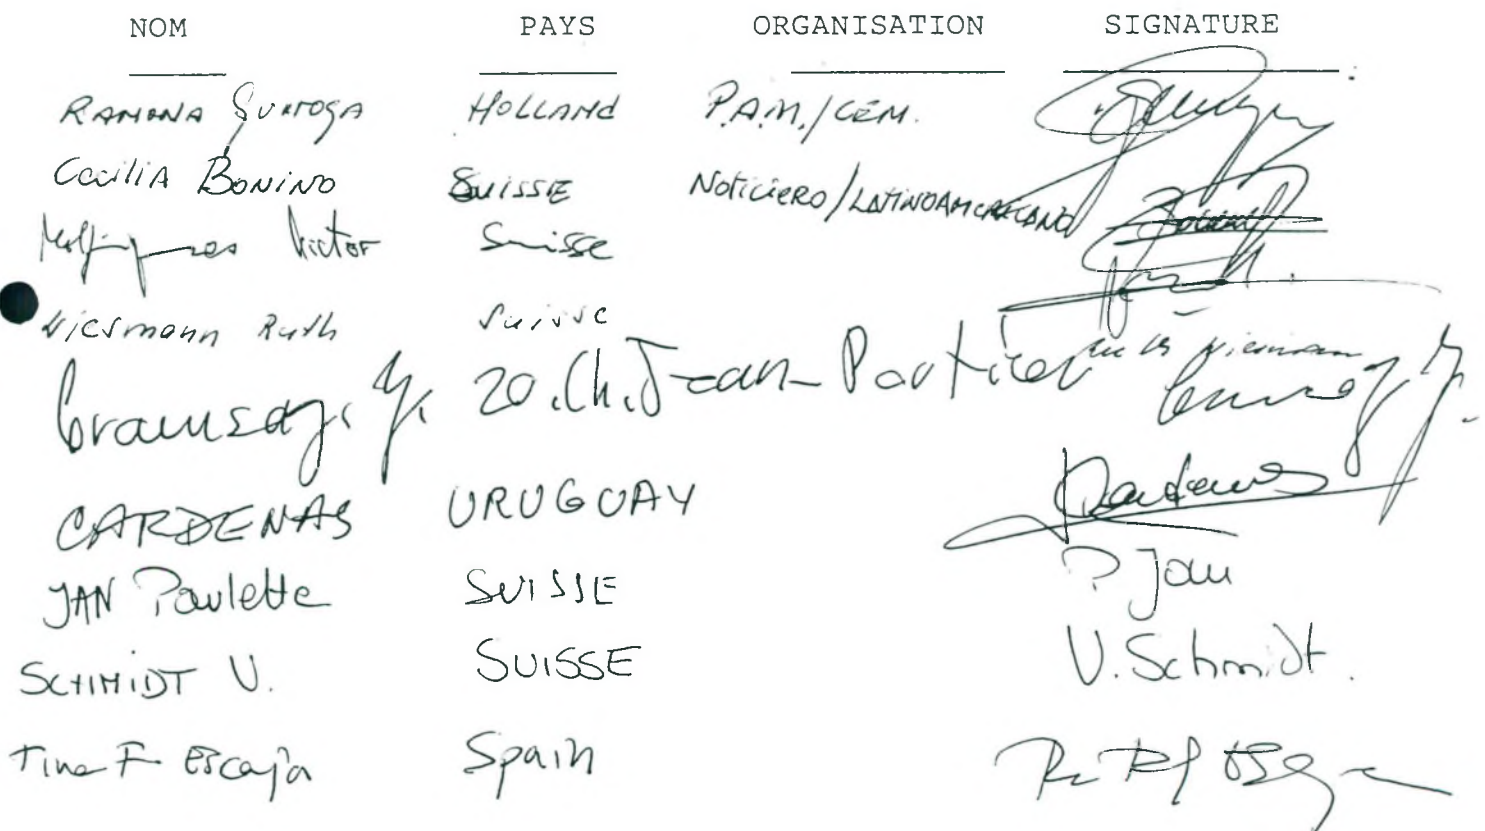 NOM PAYS ORGANISATION SIGNATURE
RAMONA HOLLAND P.A.M./CEM.
Cecilia BONINO SUISSE Noticiero/LATINOAMERICANO
Victor Suisse
Wiesmann Ruth Suisse
20.Ch.Jean-Portier
CARDENAS URUGUAY
JAN Paulette SUISSE P Jan
SCHMIDT V. SUISSE V. Schmidt.
Tina F Escaja Spain